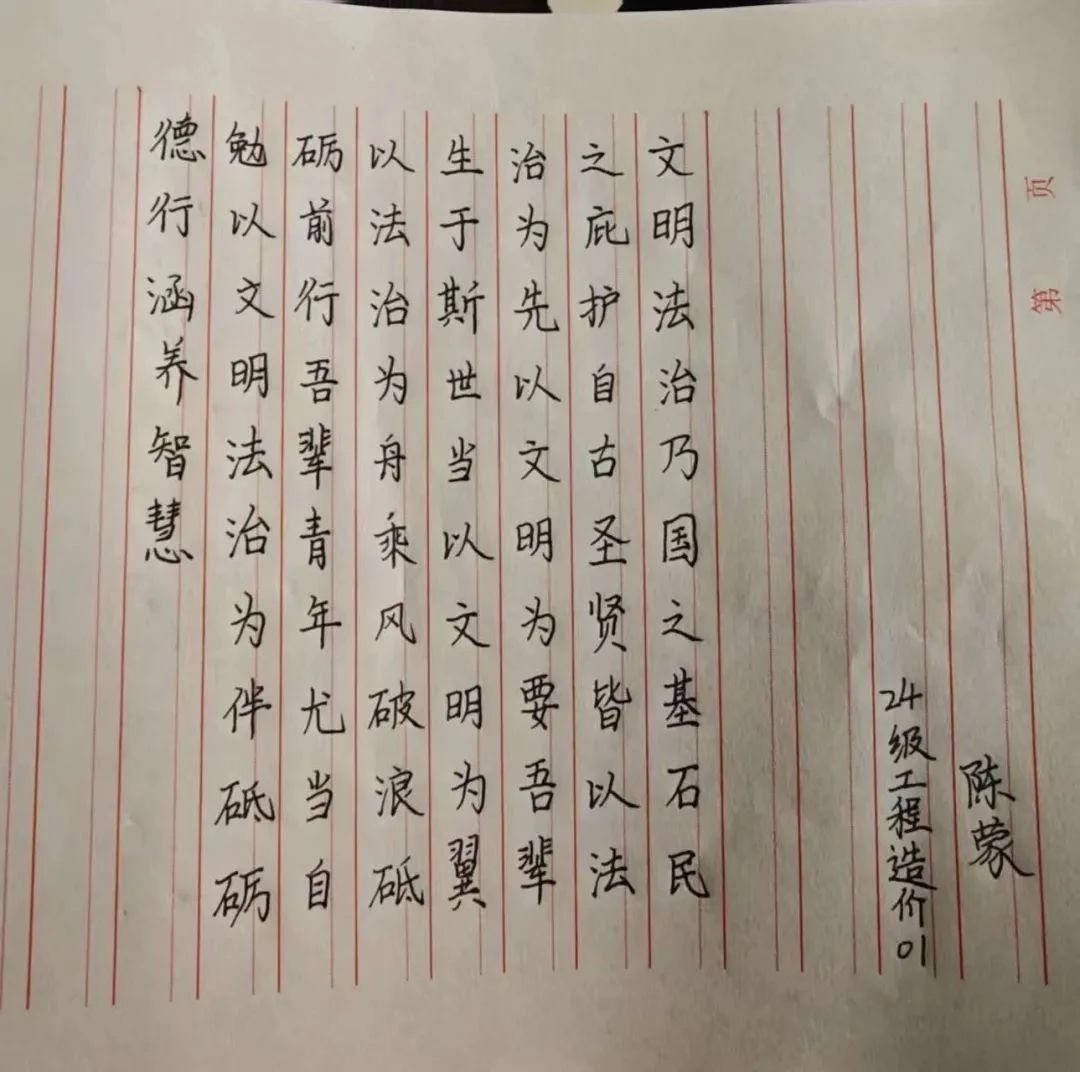 第 页
陈蒙
24级工程造价01
文明法治乃国之基石民
之庇护自古圣贤皆以法
治为先以文明为要吾辈
生于斯世当以文明为翼
以法治为舟乘风破浪砥
砺前行吾辈青年尤当自
勉以文明法治为伴砥砺
德行涵养智慧